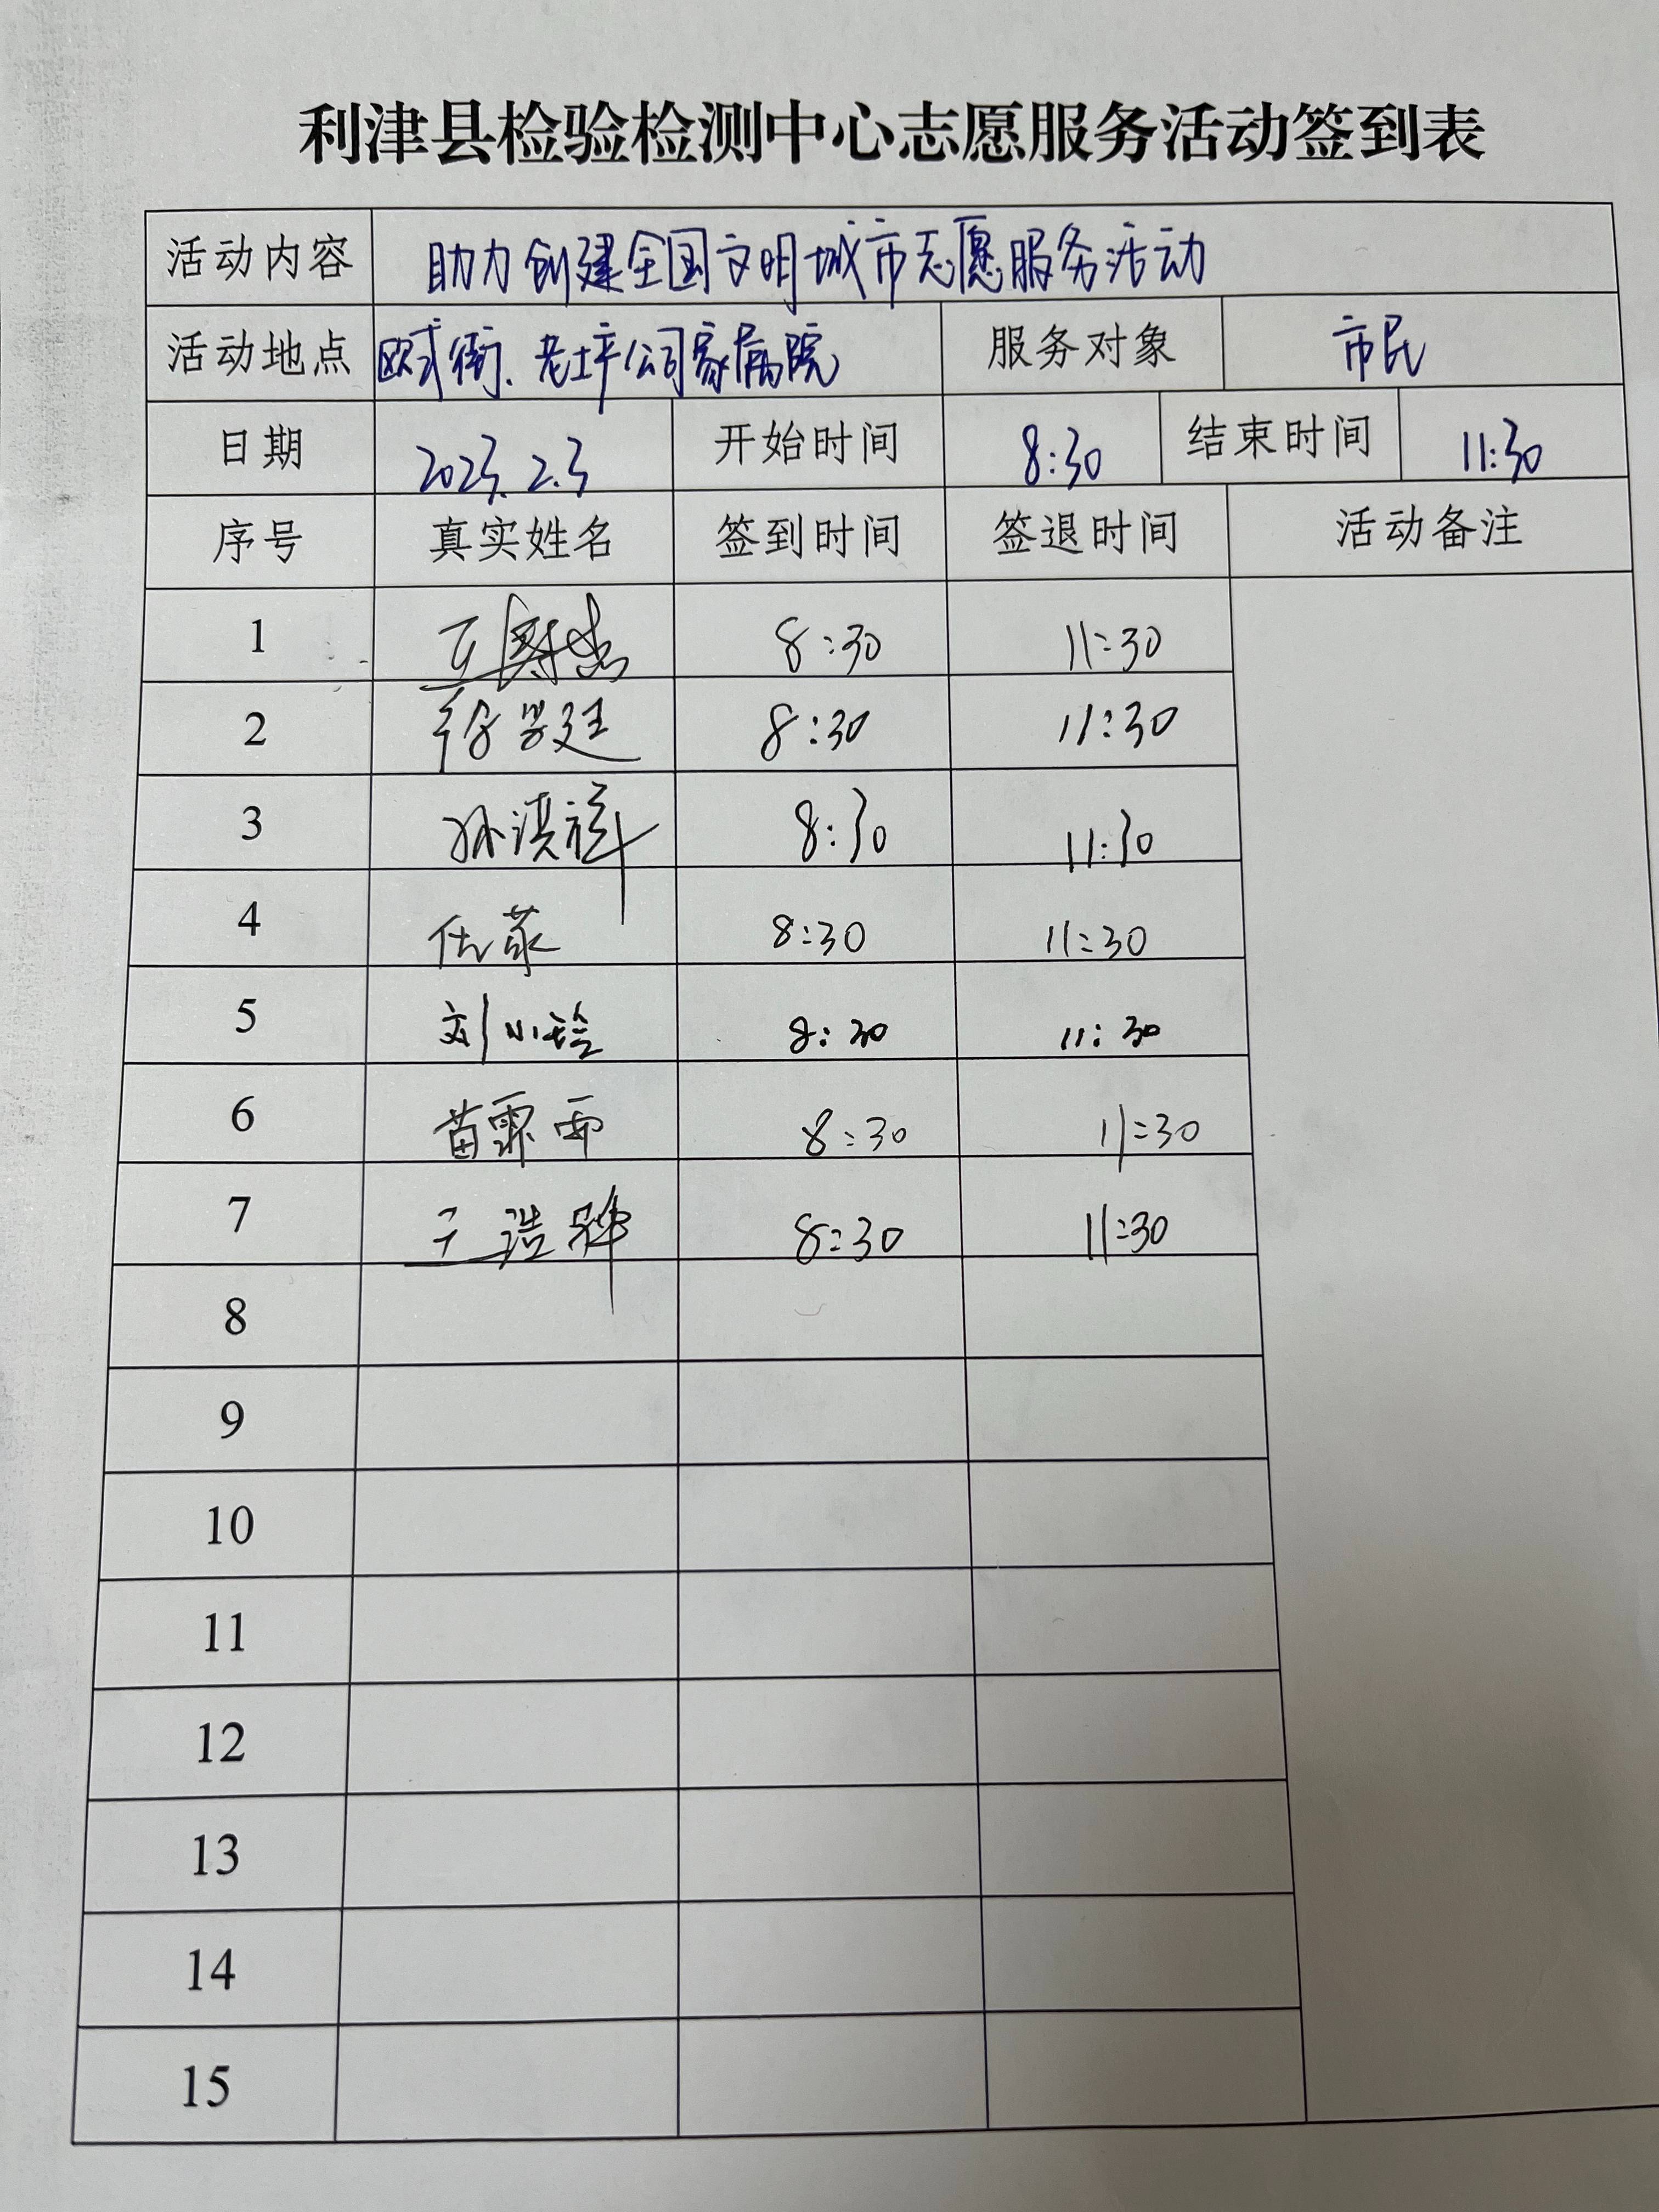 利津县检验检测中心志愿服务活动签到表
活动内容 助力创建全国文明城市志愿服务活动
活动地点 欧式街、老土产公司家属院 服务对象 市民
日期 2023.2.3 开始时间 8:30 结束时间 11:30
序号 真实姓名 签到时间 签退时间 活动备注
1 8:30 11:30
2 8:30 11:30
3 孙洪祥 8:30 11:30
4 8:30 11:30
5 刘小玲 8:30 11:30
6 苗霏雨 8:30 11:30
7 王浩骅 8:30 11:30
8
9
10
11
12
13
14
15